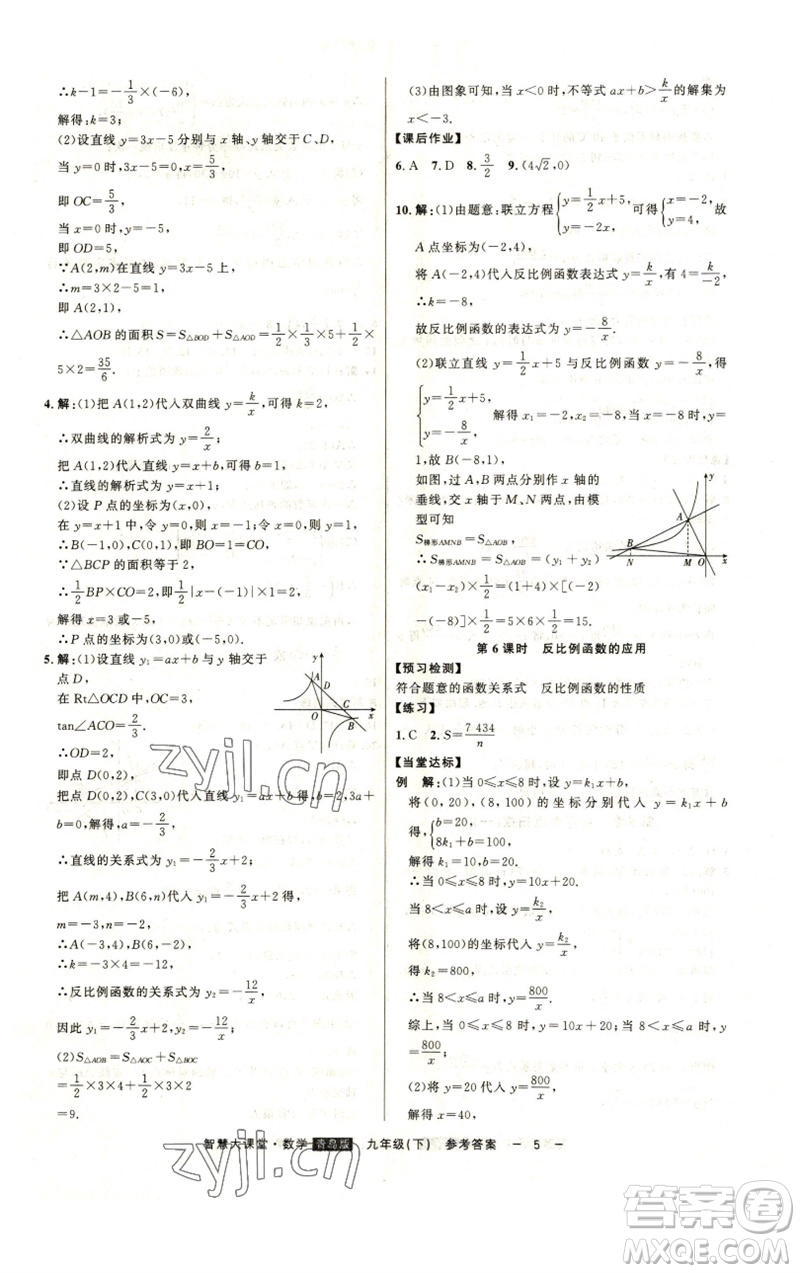 ∴k−1=−1/3×(−6),
解得:k=3;
(2)设直线 y=3x−5 分别与 x 轴、y 轴交于 C、D,
当 y=0 时,3x−5=0,x=5/3,
即 OC=5/3,
当 x=0 时,y=−5,
即 OD=5,
∵A(2,m)在直线 y=3x−5 上,
∴m=3×2−5=1,
即 A(2,1),
∴△AOB 的面积 S=S△BOD+S△AOD=1/2×1/3×5+1/2×
5×2=35/6.
4.解:(1)把 A(1,2)代入双曲线 y=k/x,可得 k=2,
∴双曲线的解析式为 y=2/x;
把 A(1,2)代入直线 y=x+b,可得 b=1,
∴直线的解析式为 y=x+1;
(2)设 P 点的坐标为(x,0),
在 y=x+1 中,令 y=0,则 x=−1;令 x=0,则 y=1,
∴B(−1,0),C(0,1),即 BO=1=CO,
∵△BCP 的面积等于 2,
∴1/2BP×CO=2,即1/2|x−(−1)|×1=2,
解得 x=3 或−5,
∴P 点的坐标为(3,0)或(−5,0).
5.解:(1)设直线 y₁=ax+b 与 y 轴交于
点 D,
在 Rt△OCD 中,OC=3,
tan∠ACO=2/3.
∴OD=2,
即点 D(0,2),
把点 D(0,2),C(3,0)代入直线 y₁=ax+b 得,b=2,3a+
b=0,解得,a=−2/3,
∴直线的关系式为 y₁=−2/3x+2;
把 A(m,4),B(6,n)代入 y₁=−2/3x+2 得,
m=−3,n=−2,
∴A(−3,4),B(6,−2),
∴k=−3×4=−12,
∴反比例函数的关系式为 y₂=−12/x,
因此 y₁=−2/3x+2,y₂=−12/x;
(2)S△AOB=S△AOC+S△BOC
=1/2×3×4+1/2×3×2
=9.
y
A
D
C
O
B
x
(3)由图象可知,当 x<0 时,不等式 ax+b>k/x 的解集为
x<−3.
【课后作业】
6.A 7.D 8.3/2 9.(4√2,0)
10.解:(1)由题意:联立方程{y=1/2x+5, y=−2x, 可得{x=−2, y=4, 故
A 点坐标为(−2,4),
将 A(−2,4)代入反比例函数表达式 y=k/x,有 4=k/−2,
∴k=−8,
故反比例函数的表达式为 y=−8/x;
(2)联立直线 y=1/2x+5 与反比例函数 y=−8/x,得
{y=1/2x+5, y=−8/x, 解得 x₁=−2,x₂=−8,当 x=−8 时,y=
1,故 B(−8,1),
如图,过 A,B 两点分别作 x 轴的
垂线,交 x 轴于 M、N 两点,由模
型可知
S梯形AMNB=S△AOB,
∴S梯形AMNB=S△AOB=(y₁+y₂)×
(x₁−x₂)×1/2=(1+4)×[(−2)
−(−8)]×1/2=5×6×1/2=15.
y
A
B
N
M
O
x
第 6 课时 反比例函数的应用
【预习检测】
符合题意的函数关系式 反比例函数的性质
【练习】
1.C 2.S=7 434/n
【当堂达标】
例 解:(1)当 0≤x≤8 时,设 y=k₁x+b,
将(0,20),(8,100)的坐标分别代入 y=k₁x+b
得{b=20, 8k₁+b=100,
解得 k₁=10,b=20.
∴当 0≤x≤8 时,y=10x+20.
当 8<x≤a 时,设 y=k₂/x,
将(8,100)的坐标代入 y=k₂/x,
得 k₂=800,
∴当 8<x≤a 时,y=800/x.
综上,当 0≤x≤8 时,y=10x+20;当 8<x≤a 时,
y=800/x;
(2)将 y=20 代入 y=800/x,
解得 x=40,
智慧大课堂·数学 青岛版 九年级(下) 参考答案 − 5 −
zyjl.cn
zyjl.cn
答案圈
MXQE.COM